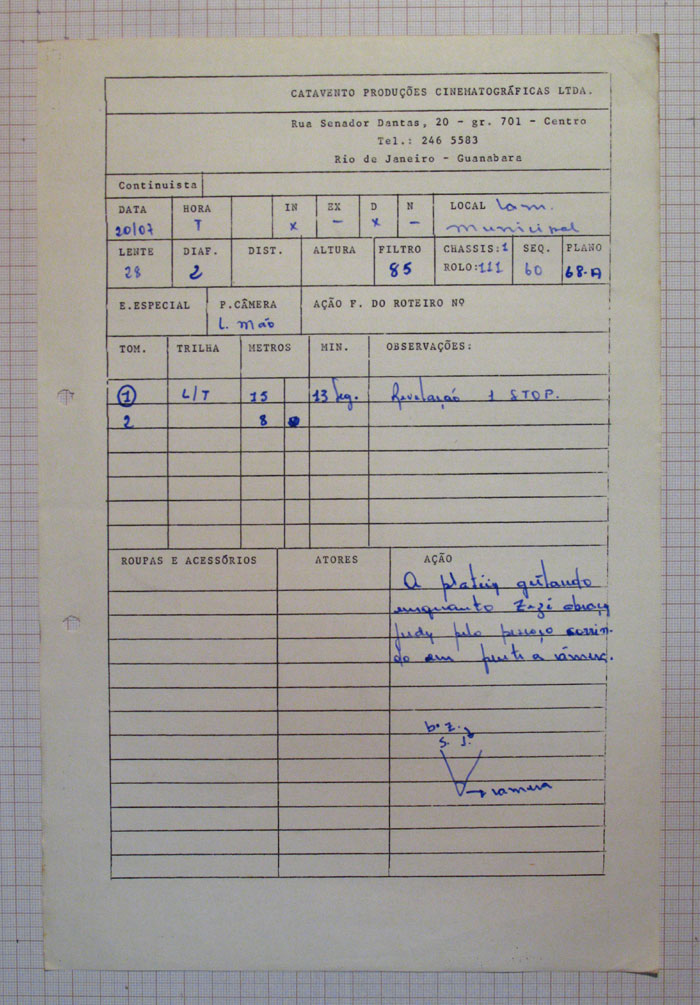 CATAVENTO PRODUÇÕES CINEMATOGRÁFICAS LTDA.
Rua Senador Dantas, 20 - gr. 701 - Centro
Tel.: 246 5583
Rio de Janeiro - Guanabara
Continuista
DATA HORA IN EX D N LOCAL
20/07 T x - x - municipal
LENTE DIAF. DIST. ALTURA FILTRO CHASSIS:1 SEQ. PLANO
28 2 85 ROLO:111 60 68-A
E.ESPECIAL P.CÂMERA AÇÃO F. DO ROTEIRO Nº
L. mão
TOM. TRILHA METROS MIN. OBSERVAÇÕES:
1 L/T 15 13 seg. Revelação 1 STOP.
2 8
ROUPAS E ACESSÓRIOS ATORES AÇÃO
A platéia gritando
enquanto Zezé abraça
Judy pelo pescoço sorrin-
do em frente a câmera.
b. z.
s. J.
camera